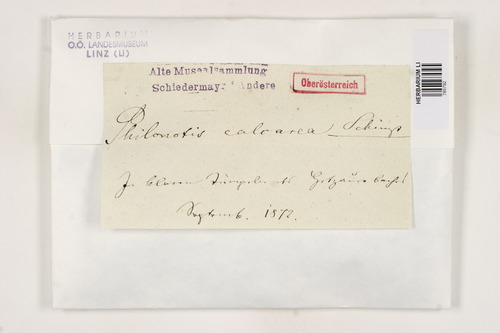 HERBARIUM
O.Ö. LANDESMUSEUM
LINZ (LI)
Alte Musealsammlung
Schiedermayr Andere
Oberösterreich
HERBARIUM LI
Philonotis calcarea Schimp
In klaren Tümpeln des
Septemb. 1872.